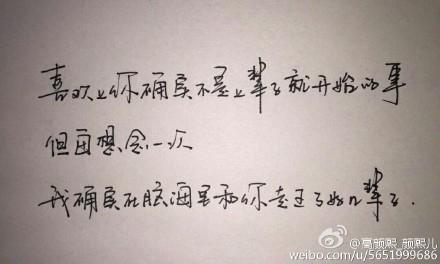 喜欢上你确实不是上辈子就开始的事
但因想念一人
我确实在脑海里和你走过了好几辈子.
@高颜熙_颜熙儿
weibo.com/u/5651999686